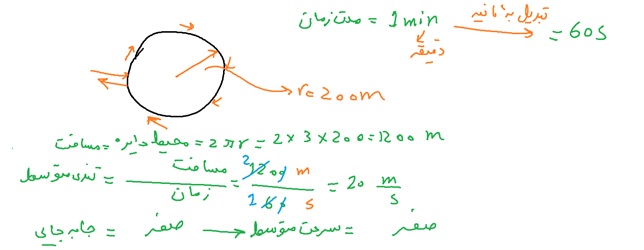 مدت زمان = 1 min تبدیل به ثانیه = 60 s
دقیقه
r = 200 m
مسافت = محیط دایره = 2πr = 2 × 3 × 200 = 1200 m
تندی متوسط = مسافت / زمان = 1200 m / 60 s = 20 m/s
جابه جایی = صفر → سرعت متوسط = صفر